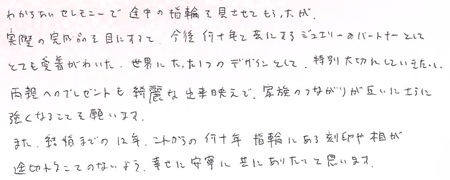 わからないセレモニーで途中の指輪を見させてもらったが、
実際の完成品を目にすると、今後何十年と共にするジュエリーのパートナーとして
とても愛着がわいた。世界にたった1つのデザインとして、特別大切にしていきたい。
両親へのプレゼントも綺麗な出来映えで、家族のつながりが互いにさらに
強くなることを願います。
また、結婚までの12年、これからの何十年 指輪にある刻印や相が
途切れることのないよう、幸せに安寧に共にありたいと思います。